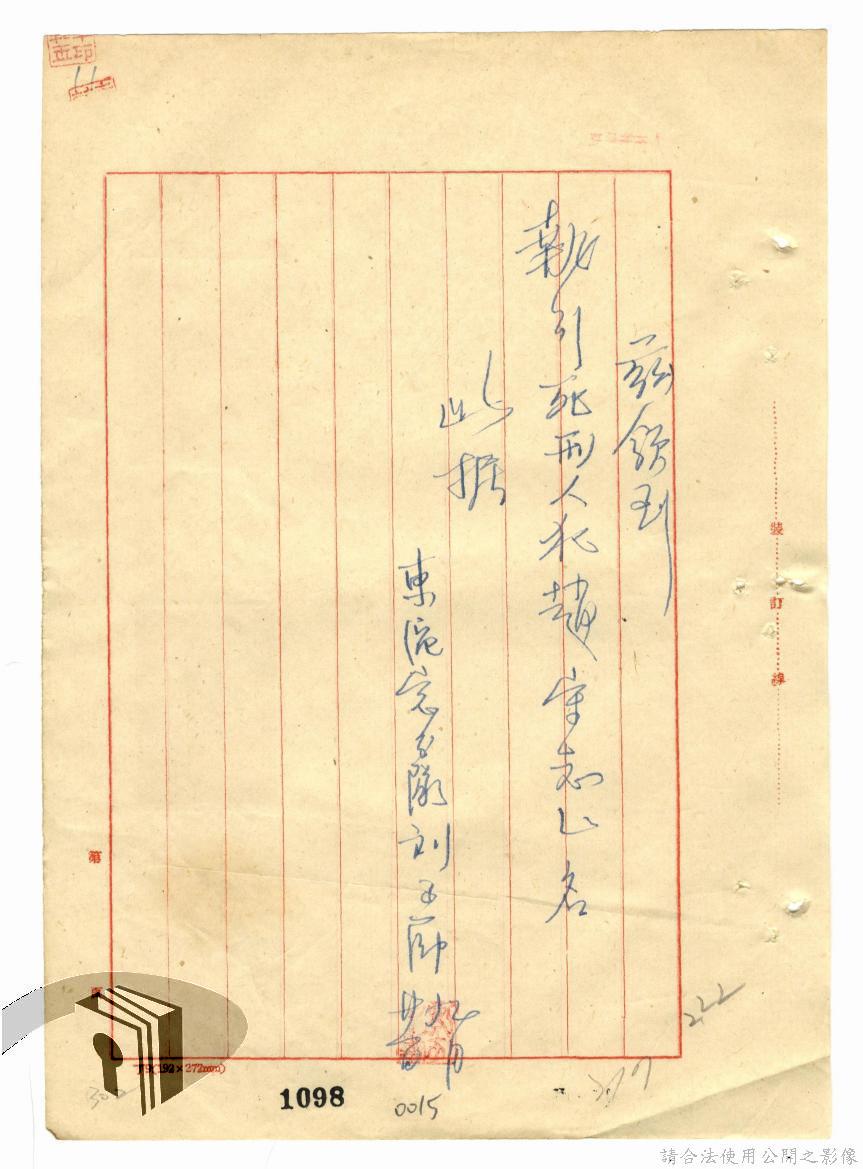 茲領到
執行死刑人犯趙守志乙名
此据
東區憲兵隊劉玉
九月
裝
訂
線
第
頁
T9(192×272mm)
1098
0015
222
請合法使用公開之影像